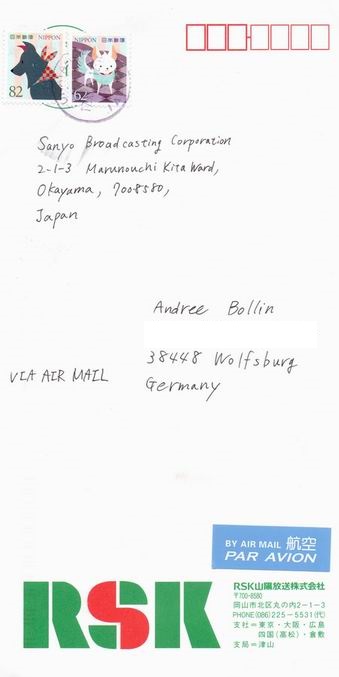 日本郵便 NIPPON
82
日本郵便 NIPPON
62
Sanyo Broadcasting Corporation
2-1-3 Marunouchi Kita Ward,
Okayama, 7008580,
Japan
Andree Bollin
38448 Wolfsburg
Germany
VIA AIR MAIL
BY AIR MAIL 航空
PAR AVION
RSK
RSK山陽放送株式会社
〒700-8580
岡山市北区丸の内2-1-3
PHONE(086)225-5531(代)
支社=東京・大阪・広島
四国(高松)・倉敷
支局=津山